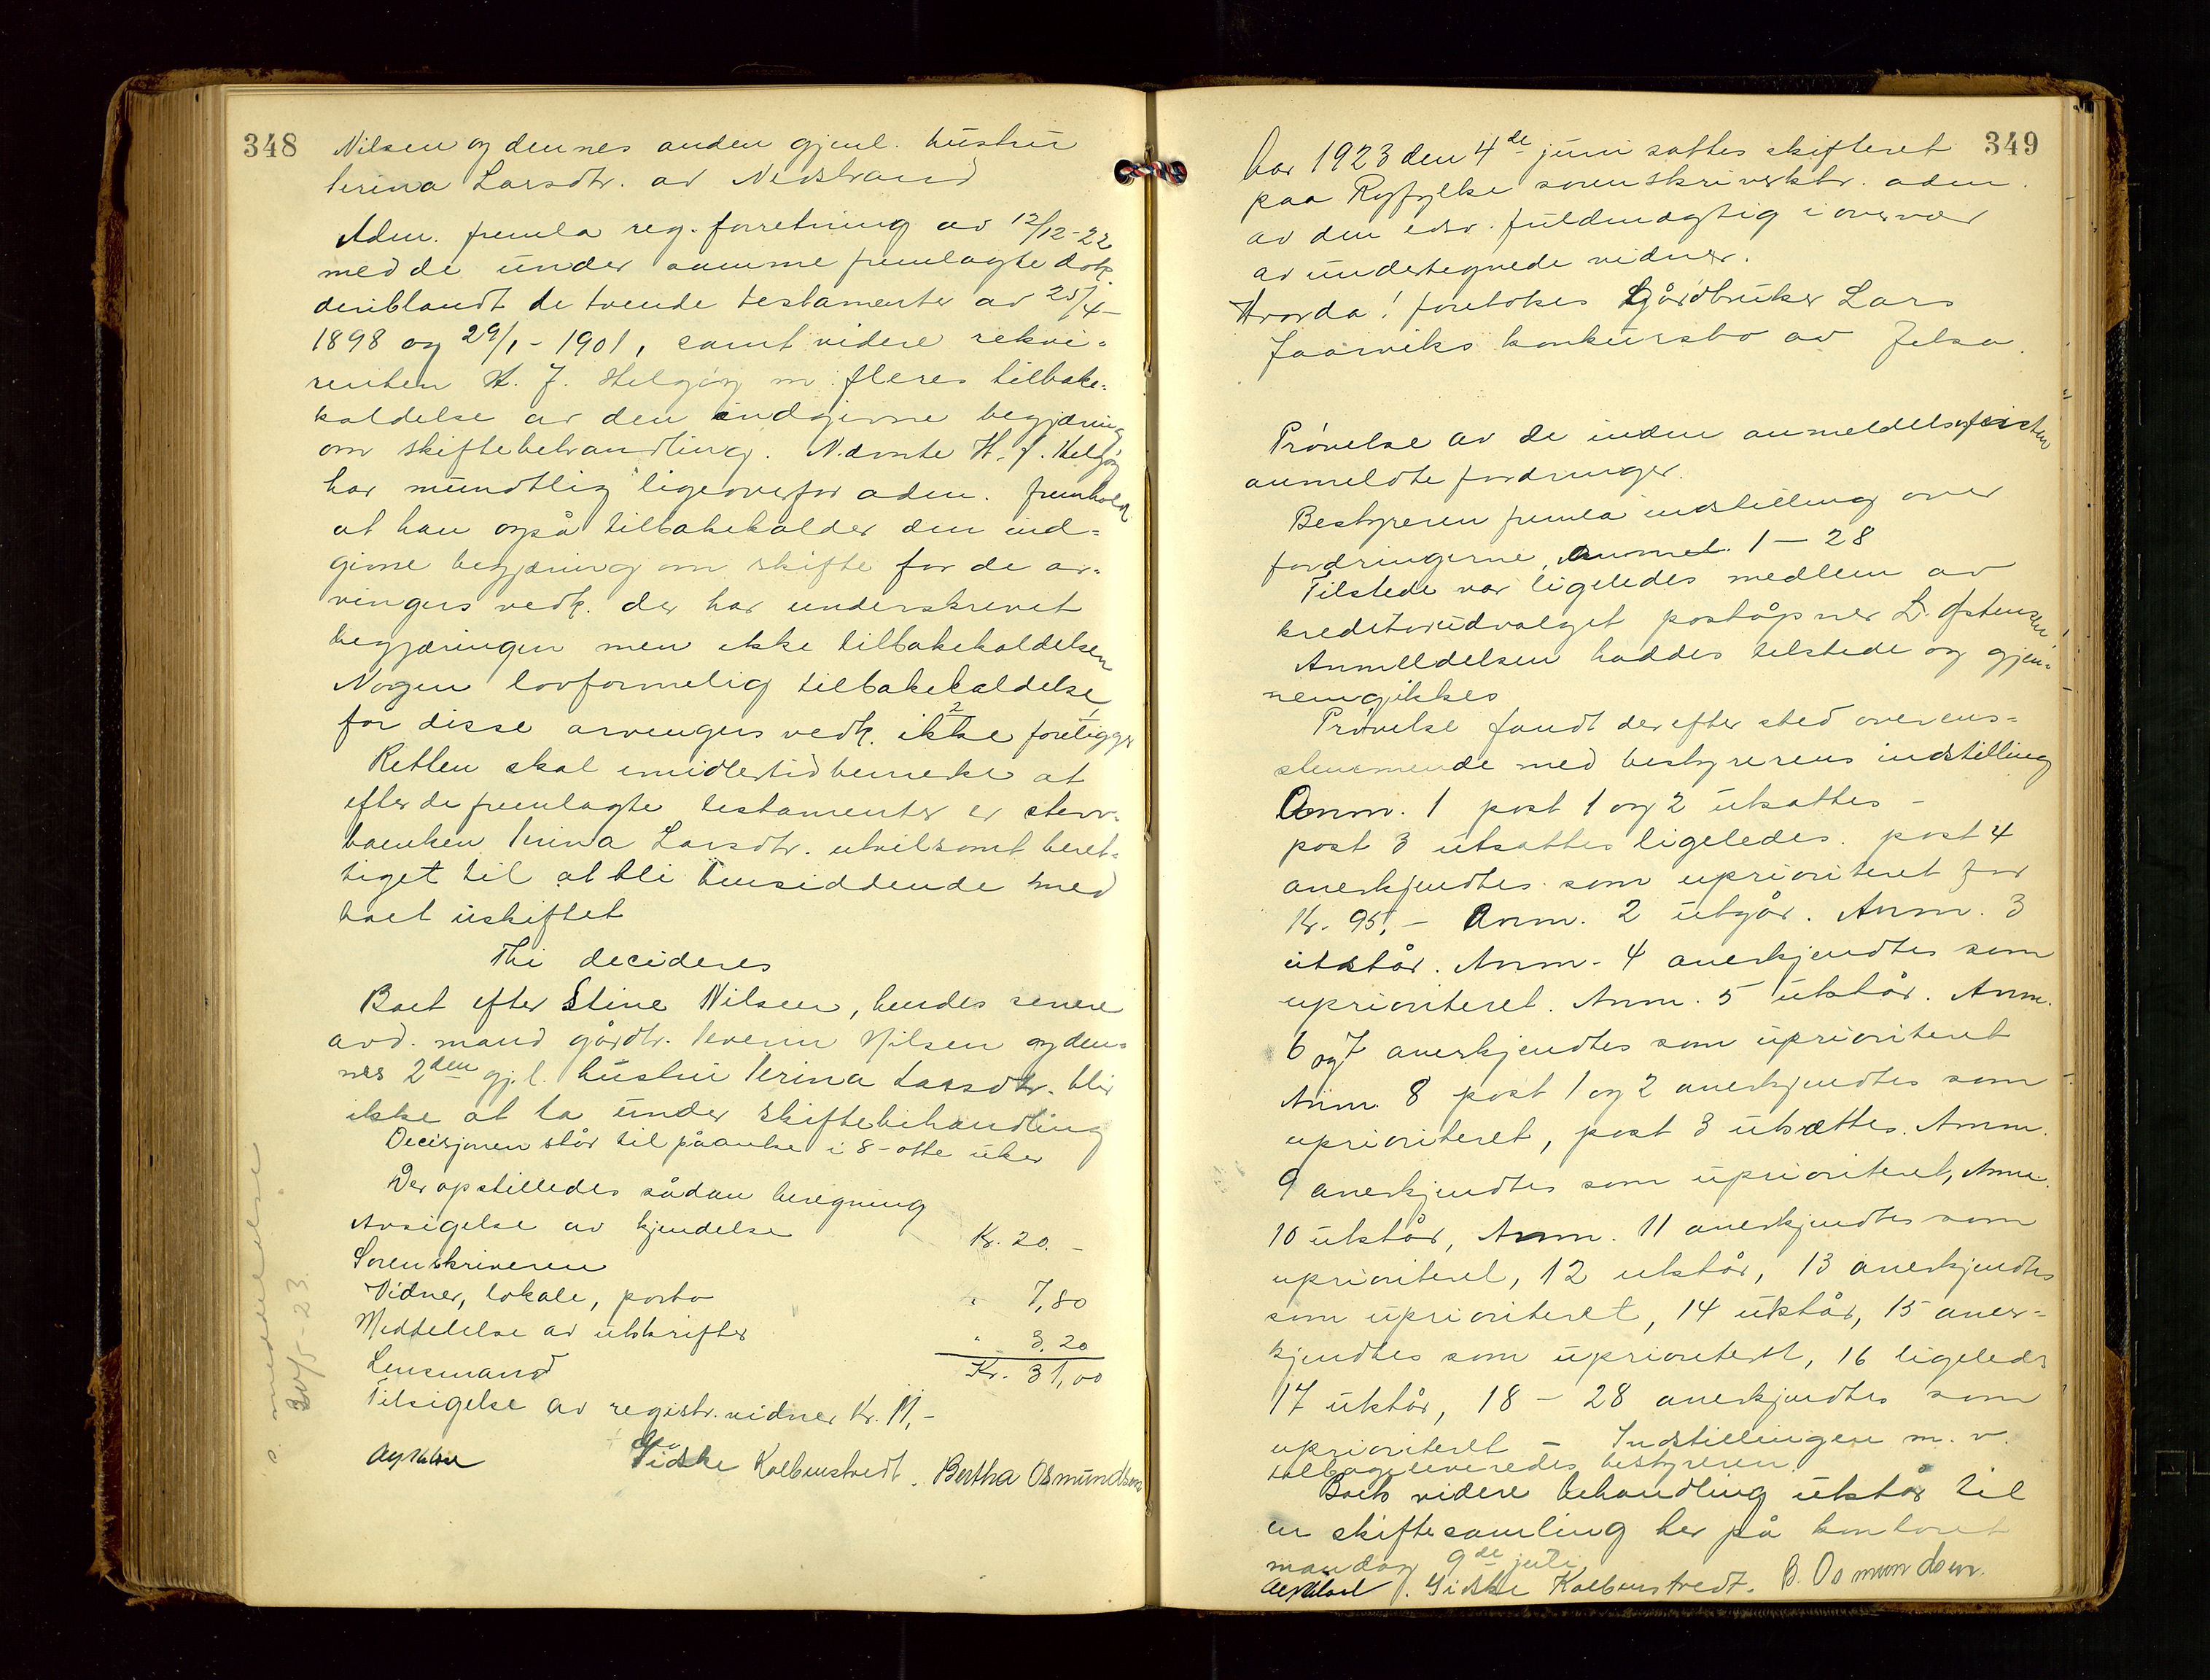 348
Nilsen og dennes anden gjenl. hustru
Serina Larsdtr. av Nedstrand
Adm. fremla reg. forretning av 12/12-22
med de under samme fremlagte dok.
deriblandt de tvende testamenter av 25/4-
1898 og 29/1-1901, samt videre rekvi-
renten H. J. Helgøy m. fleres tilbake-
kaldelse av den indgivne begjæring
om skiftebehandling. Nævnte H. J. Helgøy
har mundtlig ligeoverfor adm. fremholdt
at han også tilbakekalder den ind-
givne begjæring om skifte for de ar-
vingers vedk. der har underskrevet
begjæringen men ikke tilbakekaldelsen
Nogen lovformelig tilbakekaldelse
for disse arvingers vedk. ikke foreligger
Retten skal imidlertid bemerke at
efter de fremlagte testamenter er sterv-
boenken Serina Larsdtr. utvilsomt beret-
tiget til at bli hensiddende med
boet uskiftet
Thi decideres
Boet efter Stine Nilsen, hendes senere
avd. mand gårdbr. Severin Nilsen og den-
nes 2den gjl. hustru Serina Larsdtr. blir
ikke at ta under skiftebehandling
Decisjonen står til påanke i 8-otte uker
Der opstilledes sådan beregning
Avsigelse av kjendelse Kr. 20.-
Sorenskriveren
Vidner, lokale, porto " 7,80
Meddelelse av utskrifter " 3.20
Lensmand Kr. 31,00
Tilsigelse av registr. vidner Kr. 11,-
Gidske Kolbenstvedt. Bertha Osmundsen
o. meddelelse
30/5-23.
349
Aar 1923 den 4de juni sattes skifteret
paa Ryfylke sorenskriverktr. adm.
av den edsv. fuldmægtig i overvær
av undertegnede vidner.
Hvorda! foretokes Gårdbruker Lars
Jaarviks konkursbo av Jelsa.
Prøvelse av de inden anmeldelsesfristen
anmeldte fordringer.
Bestyreren fremla indstilling over
fordringerne, Anmel. 1-28
Tilstede var ligeledes medlem av
kreditorudvalget poståpner L. Østensen
Anmeldelsen haddes tilstede og gjen-
nemgikkes
Prøvelse fandt derefter sted overens-
stemmende med bestyrerens indstilling
Anm. 1 post 1 og 2 utsattes -
post 3 utsattes ligeledes. post 4
anerkjendtes som uprioritert for
Kr. 95,- Anm. 2 utgår. Anm. 3
utstår. Anm. 4 anerkjendtes som
uprioriteret. Anm. 5 utstår. Anm.
6 og 7 anerkjendtes som uprioriteret
Anm. 8 post 1 og 2 anerkjendtes som
uprioriteret, post 3 utsættes. Anm.
9 anerkjendtes som uprioriteret, Anm.
10 utstår, Anm. 11 anerkjendtes som
uprioriteret, 12 utstår, 13 anerkjendtes
som uprioriteret, 14 utstår, 15 aner-
kjendtes som uprioriteret, 16 ligeleds
17 utstår, 18-28 anerkjendtes som
uprioriteret - Indstillingen m. v.
tilbageleveredes bestyreren.
Boets videre behandling utstår til
en skiftesamling her på kontoret
mandag 9de juli
Gidske Kolbenstvedt. B. Osmundsen.